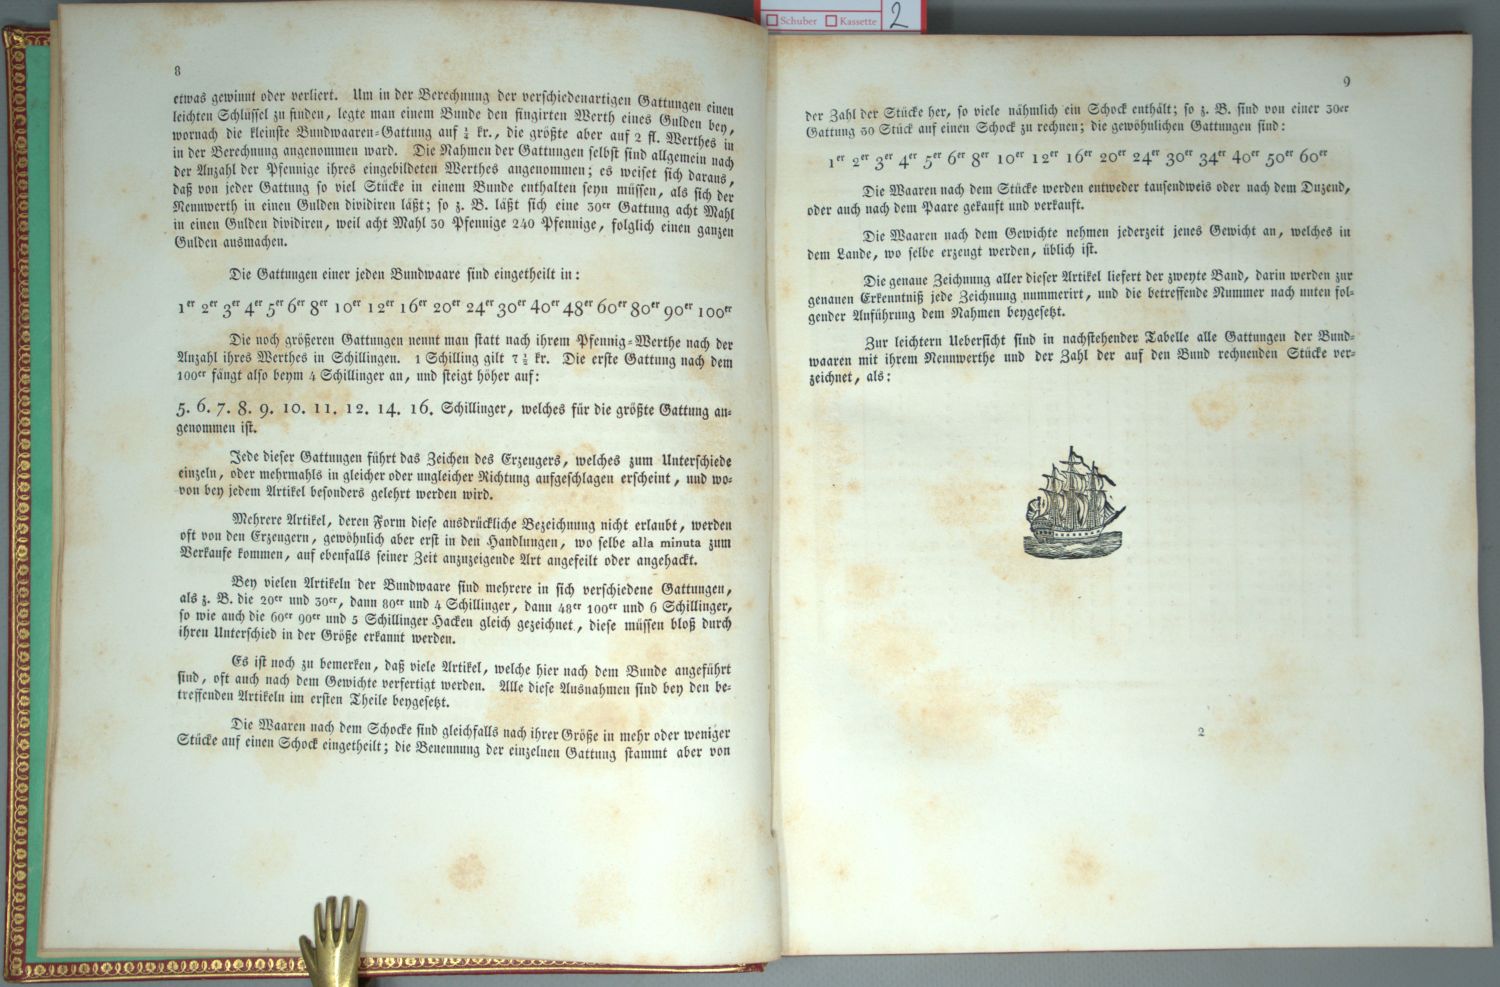 Schuber Kassette 2
8
etwas gewinnt oder verliert. Um in der Berechnung der verschiedenartigen Gattungen einen
leichten Schlüssel zu finden, legte man einem Bunde den fingirten Werth eines Gulden bey,
wornach die kleinste Bundwaaren-Gattung auf ¼ kr., die größte aber auf 2 fl. Werthes in
in der Berechnung angenommen ward. Die Nahmen der Gattungen selbst sind allgemein nach
der Anzahl der Pfennige ihres eingebildeten Werthes angenommen; es weiset sich daraus,
daß von jeder Gattung so viel Stücke in einem Bunde enthalten seyn müssen, als sich der
Nennwerth in einen Gulden dividiren läßt; so z. B. läßt sich eine 30er Gattung acht Mahl
in einen Gulden dividiren, weil acht Mahl 30 Pfennige 240 Pfennige, folglich einen ganzen
Gulden ausmachen.
Die Gattungen einer jeden Bundwaare sind eingetheilt in:
1er 2er 3er 4er 5er 6er 8er 10er 12er 16er 20er 24er 30er 40er 48er 60er 80er 90er 100er
Die noch größeren Gattungen nennt man statt nach ihrem Pfennig-Werthe nach der
Anzahl ihres Werthes in Schillingen. 1 Schilling gilt 7 ½ kr. Die erste Gattung nach dem
100er fängt also beym 4 Schillinger an, und steigt höher auf:
5. 6. 7. 8. 9. 10. 11. 12. 14. 16. Schillinger, welches für die größte Gattung an-
genommen ist.
Jede dieser Gattungen führt das Zeichen des Erzeugers, welches zum Unterschiede
einzeln, oder mehrmahls in gleicher oder ungleicher Richtung aufgeschlagen erscheint, und wo-
von bey jedem Artikel besonders gelehrt werden wird.
Mehrere Artikel, deren Form diese ausdrückliche Bezeichnung nicht erlaubt, werden
oft von den Erzeugern, gewöhnlich aber erst in den Handlungen, wo selbe alla minuta zum
Verkaufe kommen, auf ebenfalls seiner Zeit anzuzeigende Art angefeilt oder angehackt.
Bey vielen Artikeln der Bundwaare sind mehrere in sich verschiedene Gattungen,
als z. B. die 20er und 30er, dann 80er und 4 Schillinger, dann 48er 100er und 6 Schillinger,
so wie auch die 60er 90er und 5 Schillinger Hacken gleich gezeichnet, diese müssen bloß durch
ihren Unterschied in der Größe erkannt werden.
Es ist noch zu bemerken, daß viele Artikel, welche hier nach dem Bunde angeführt
sind, oft auch nach dem Gewichte verfertigt werden. Alle diese Ausnahmen sind bey den be-
treffenden Artikeln im ersten Theile beygesetzt.
Die Waaren nach dem Schocke sind gleichfalls nach ihrer Größe in mehr oder weniger
Stücke auf einen Schock eingetheilt; die Benennung der einzelnen Gattung stammt aber von
9
der Zahl der Stücke her, so viele nähmlich ein Schock enthält; so z. B. sind von einer 30er
Gattung 30 Stück auf einen Schock zu rechnen; die gewöhnlichen Gattungen sind:
1er 2er 3er 4er 5er 6er 8er 10er 12er 16er 20er 24er 30er 34er 40er 50er 60er
Die Waaren nach dem Stücke werden entweder tausendweis oder nach dem Duzend,
oder auch nach dem Paare gekauft und verkauft.
Die Waaren nach dem Gewichte nehmen jederzeit jenes Gewicht an, welches in
dem Lande, wo selbe erzeugt werden, üblich ist.
Die genaue Zeichnung aller dieser Artikel liefert der zweyte Band, darin werden zur
genauen Erkenntniß jede Zeichnung nummerirt, und die betreffende Nummer nach unten fol-
gender Anführung dem Nahmen beygesetzt.
Zur leichtern Uebersicht sind in nachstehender Tabelle alle Gattungen der Bund-
waaren mit ihrem Nennwerthe und der Zahl der auf den Bund rechnenden Stücke ver-
zeichnet, als:
2